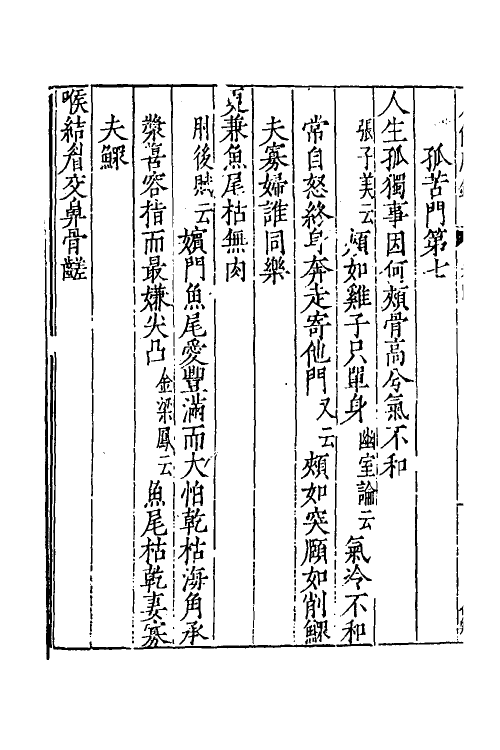 孤苦門第七
人生孤獨事因何頰骨高兮氣不和
張子美云頰如雞子只單身幽室論云氣冷不和
常自怒終身奔走寄他門又云頰如突顴如削鰥
夫寡婦誰同樂
更兼魚尾枯無肉
肘後賦云嬪門魚尾愛豐滿而大怕乾枯海角承
漿喜容指而最嫌尖凸金梁鳳云魚尾枯乾妻寡
夫鰥
喉結眉交鼻骨齹